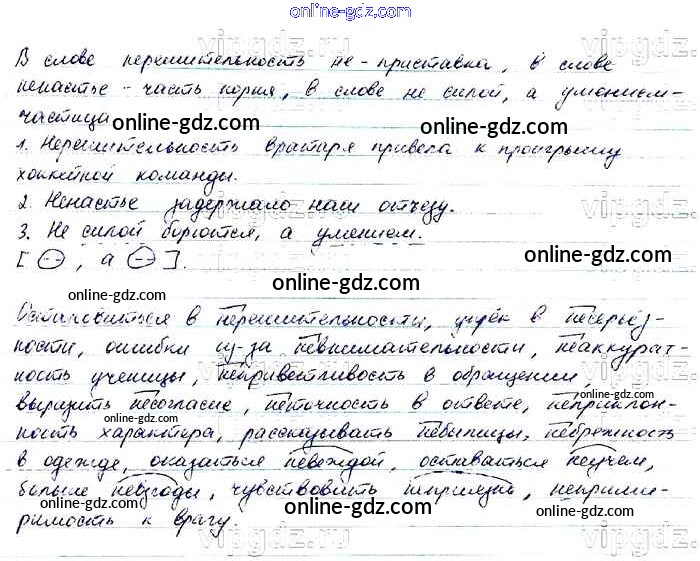 online-gdz.com
vipgdz.ru
В слове нерешительность не - приставка, в слове
ненастье - часть корня, в слове не силой, а умением -
частица
online-gdz.com
online-gdz.com
1. Нерешительность вратаря привела к проигрышу
хоккейной команды.
2. Ненастье задержало наш отъезд.
3. Не силой борются, а умением.
[ , а ].
online-gdz.com
online-gdz.com
online-gdz.com
Остановиться в нерешительности, упрёк в несерьёз-
ности, ошибки из-за невнимательности, неаккурат-
online-gdz.com
ность ученицы, неприветливость в обращении,
выразить несогласие, неточность в ответе, непреклон-
online-gdz.com
ность характера, рассказывать небылицы, небрежность
online-gdz.com
в одежде, оказаться невеждой, оставаться неучем,
online-gdz.com
большие невзгоды, чувствовать неприязнь, неприми-
римость к врагу.
online-gdz.com
vipgdz.ru